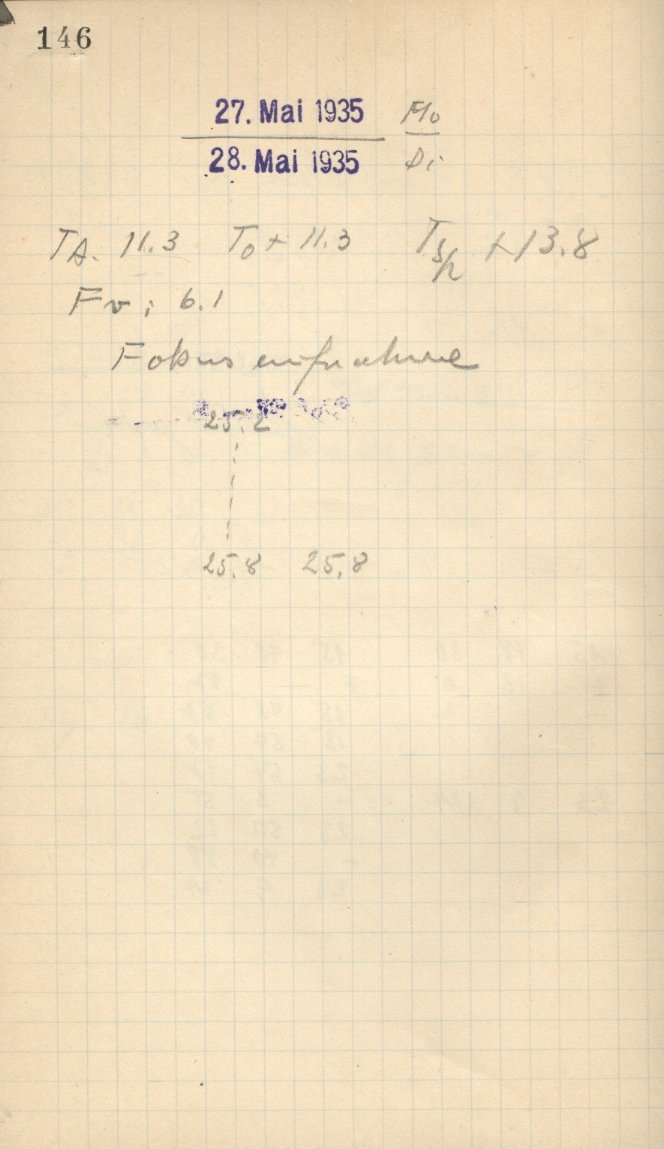 146
27. Mai 1935 Mo
28. Mai 1935 Di
TA. 11.3 To + 11.3 Tsp + 13.8
Fv: 6.1
Fokus aufnahme
25.2
25.8 25.8